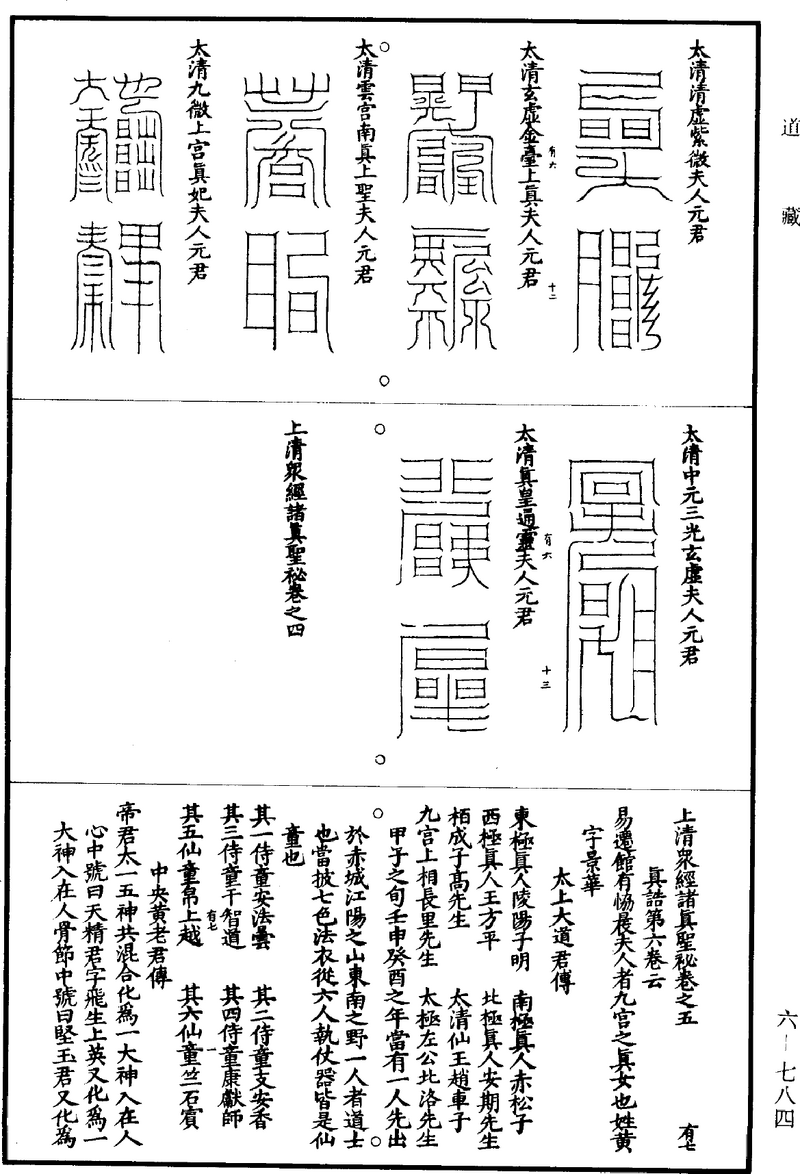 道藏
太清清虛紫微夫人元君
有六
十二
太清玄虛金臺上真夫人元君
太清雲宮南真上聖夫人元君
太清九微上宮真妃夫人元君
太清中元三光玄虛夫人元君
有六
十三
太清真皇通靈夫人元君
上清眾經諸真聖祕卷之四
上清眾經諸真聖祕卷之五
有七
真誥第六卷云
易遷館有恊晨夫人者九宮之真女也姓黃
字景華
太上大道君傳
東極真人陵陽子明 南極真人赤松子
西極真人王方平 北極真人安期先生
栢成子高先生 太清仙王趙車子
九宮上相長里先生 太極左公北洛先生
甲子之旬壬申癸酉之年當有一人先出
於赤城江陽之山東南之野一人者道士
也當披七色法衣從六人執仗器皆是仙
童也
其一侍童安法曇 其二侍童支安香
其三侍童干智道 其四侍童康獻師
有七
一
其五仙童帛上越 其六仙童竺石賓
中央黃老君傳
帝君太一五神共混合化為一大神入在人
心中號曰天精君字飛生上英又化為一
大神入在人骨節中號曰堅玉君又化為
六—七八四